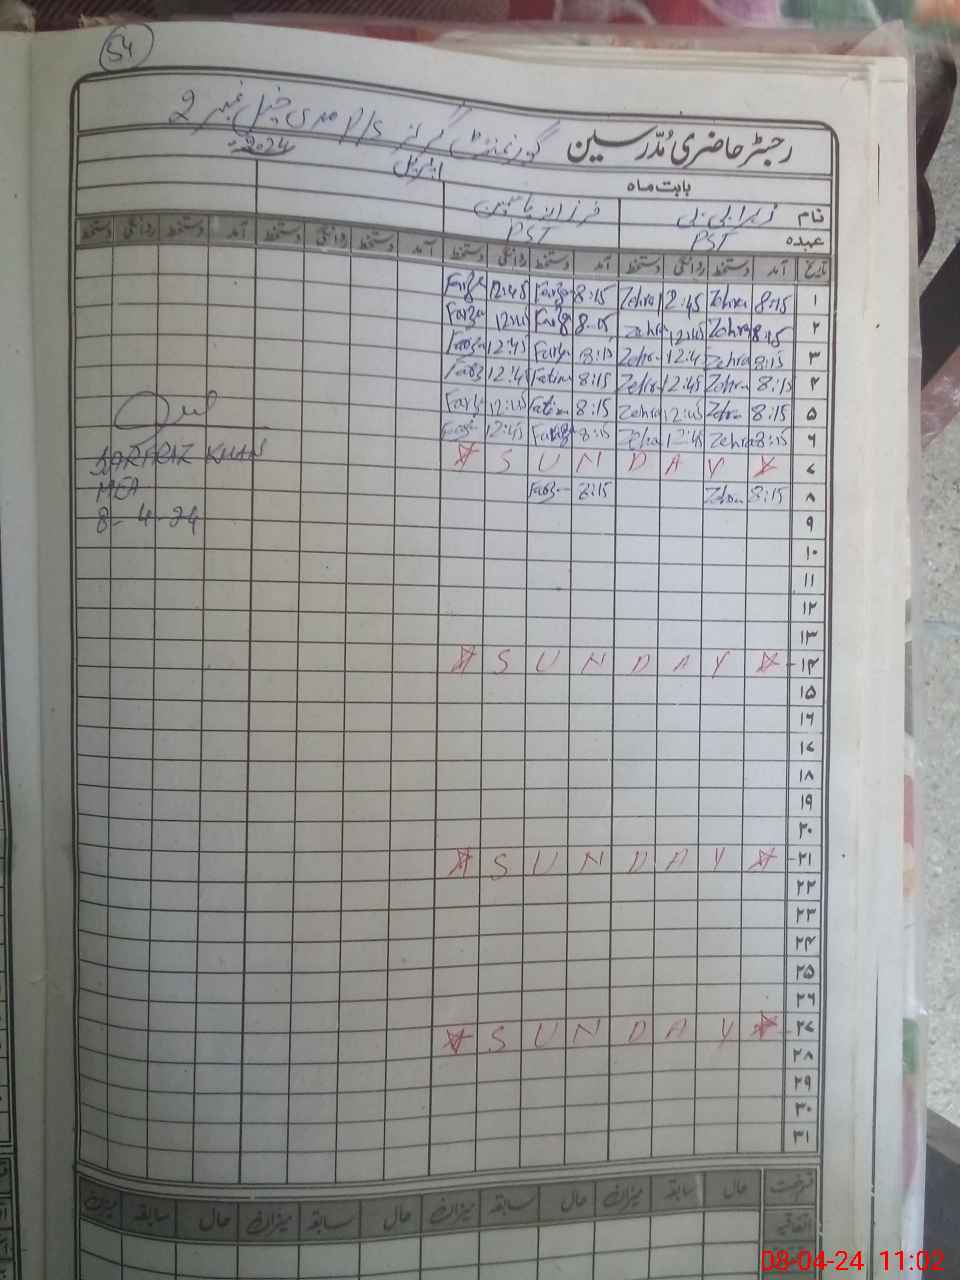 54
رجسٹر حاضری مُدّرسین گورنمنٹ گرلز P/S نمبر 2
بابت ماہ اپریل 2024
نام زہرا بی بی فرزانہ یاسمین
عہدہ PST PST
تاریخ آمد دستخط روانگی دستخط آمد دستخط روانگی دستخط آمد دستخط روانگی دستخط آمد دستخط روانگی دستخط
۱ 8:15 Zehra 12:45 Zehra 8:15 Farz 12:45 Farz
۲ 8:15 Zehra 12:45 Zehra 8:15 Farz 12:45 Farz
۳ 8:15 Zehra 12:45 Zehra 8:15 Farz 12:45 Farz
۴ 8:15 Zehra 12:45 Zehra 8:15 12:45 Farz
۵ 8:15 Zehra 12:45 Zehra 8:15 12:45 Farz
۶ 8:15 Zehra 12:45 Zehra 8:15 12:45 Farz
۷ SUNDAY
SARFRAZ KHAN
MEA
۸ 8:15 Zehra 8:15 Farz
8-4-24
۹
۱۰
۱۱
۱۲
۱۳
۱۴ SUNDAY
۱۵
۱۶
۱۷
۱۸
۱۹
۲۰
۲۱ SUNDAY
۲۲
۲۳
۲۴
۲۵
۲۶
۲۷ SUNDAY
۲۸
۲۹
۳۰
۳۱
رخصت حال سابقہ میزان حال سابقہ میزان حال سابقہ میزان حال سابقہ میزان
اتفاقیہ
08-04-24 11:02